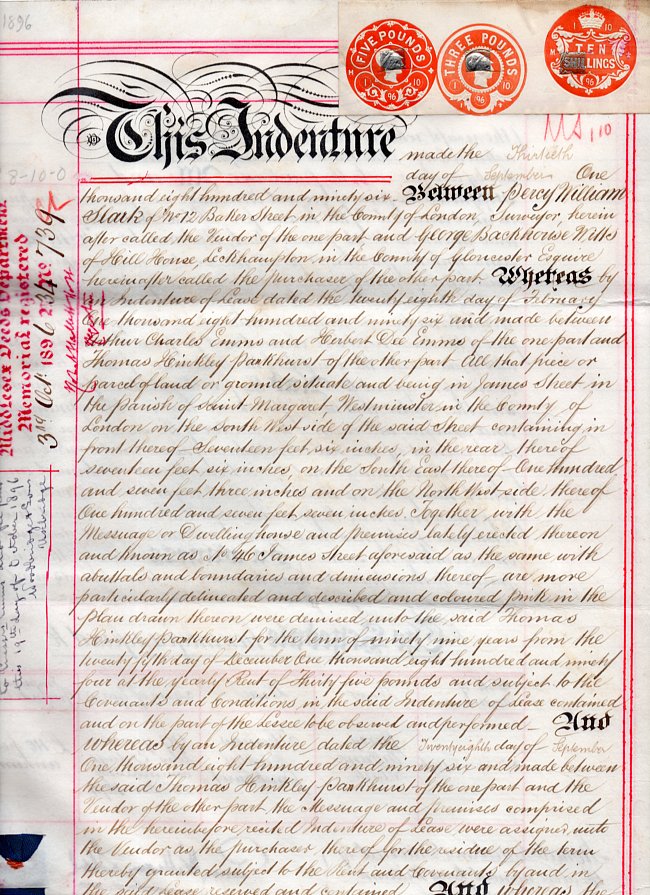 1896
FIVE POUNDS
1 10
96
THREE POUNDS
1 10
96
1 10
TEN
SHILLINGS
96
This Indenture
made the Thirtieth
8-10-0
day of September One
thousand eight hundred and ninety six Between Percy William
Stark of No 12 Baker Street in the County of London Surveyor herein
after called the Vendor of the one part and George Backhouse Witts
of Hill House Leckhampton in the County of Gloucester Esquire
hereinafter called the purchaser of the other part Whereas by
Indenture of Lease dated the twenty eighth day of February
thousand eight hundred and ninety six and made between
Arthur Charles Emms and Herbert Dee Emms of the one part and
Thomas Hinkley Parkhurst of the other part All that piece or
parcel of land or ground situate and being in James Street in
the Parish of Saint Margaret Westminster in the County of
London on the South West side of the said Street containing in
front thereof Seventeen feet six inches in the rear thereof
seventeen feet six inches on the South East thereof One hundred
and seven feet three inches and on the North West side thereof
One hundred and seven feet seven inches Together with the
Messuage or Dwellinghouse and premises lately erected thereon
and known as No 46 James Street aforesaid as the same with
abuttals and boundaries and dimensions thereof are more
particularly delineated and described and coloured pink in the
plan drawn thereon were demised unto the said Thomas
Hinkley Parkhurst for the term of ninety nine years from the
twenty fifth day of December One thousand eight hundred and ninety
four at the yearly Rent of Thirty five pounds and subject to the
Covenants and Conditions in the said Indenture of Lease contained
and on the part of the Lessee to be observed and performed And
whereas by an Indenture dated the Twentyeighth day of September
One thousand eight hundred and ninety six and made between
the said Thomas Hinkley Parkhurst of the one part and the
Vendor of the other part the Messuage and premises comprised
in the hereinbefore recited Indenture of Lease were assigned unto
the Vendor as the purchaser thereof for the residue of the term
thereby granted subject to the Rent and Covenants by and in
the said Lease reserved and contained And whereas the
Middlesex Deeds Department
Memorial registered
3rd Oct 1896 2. 34 739
this 19th day of October 1896
Uxbridge